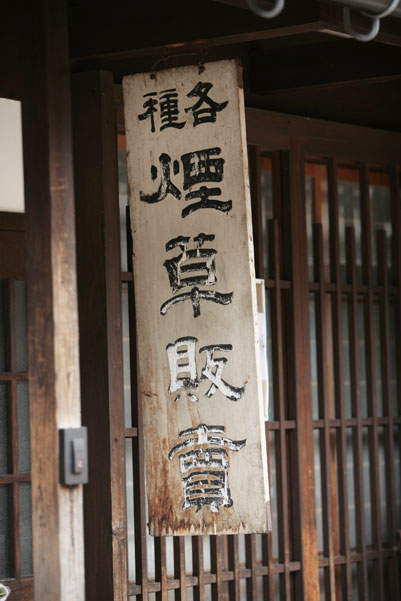 各種
煙草販賣